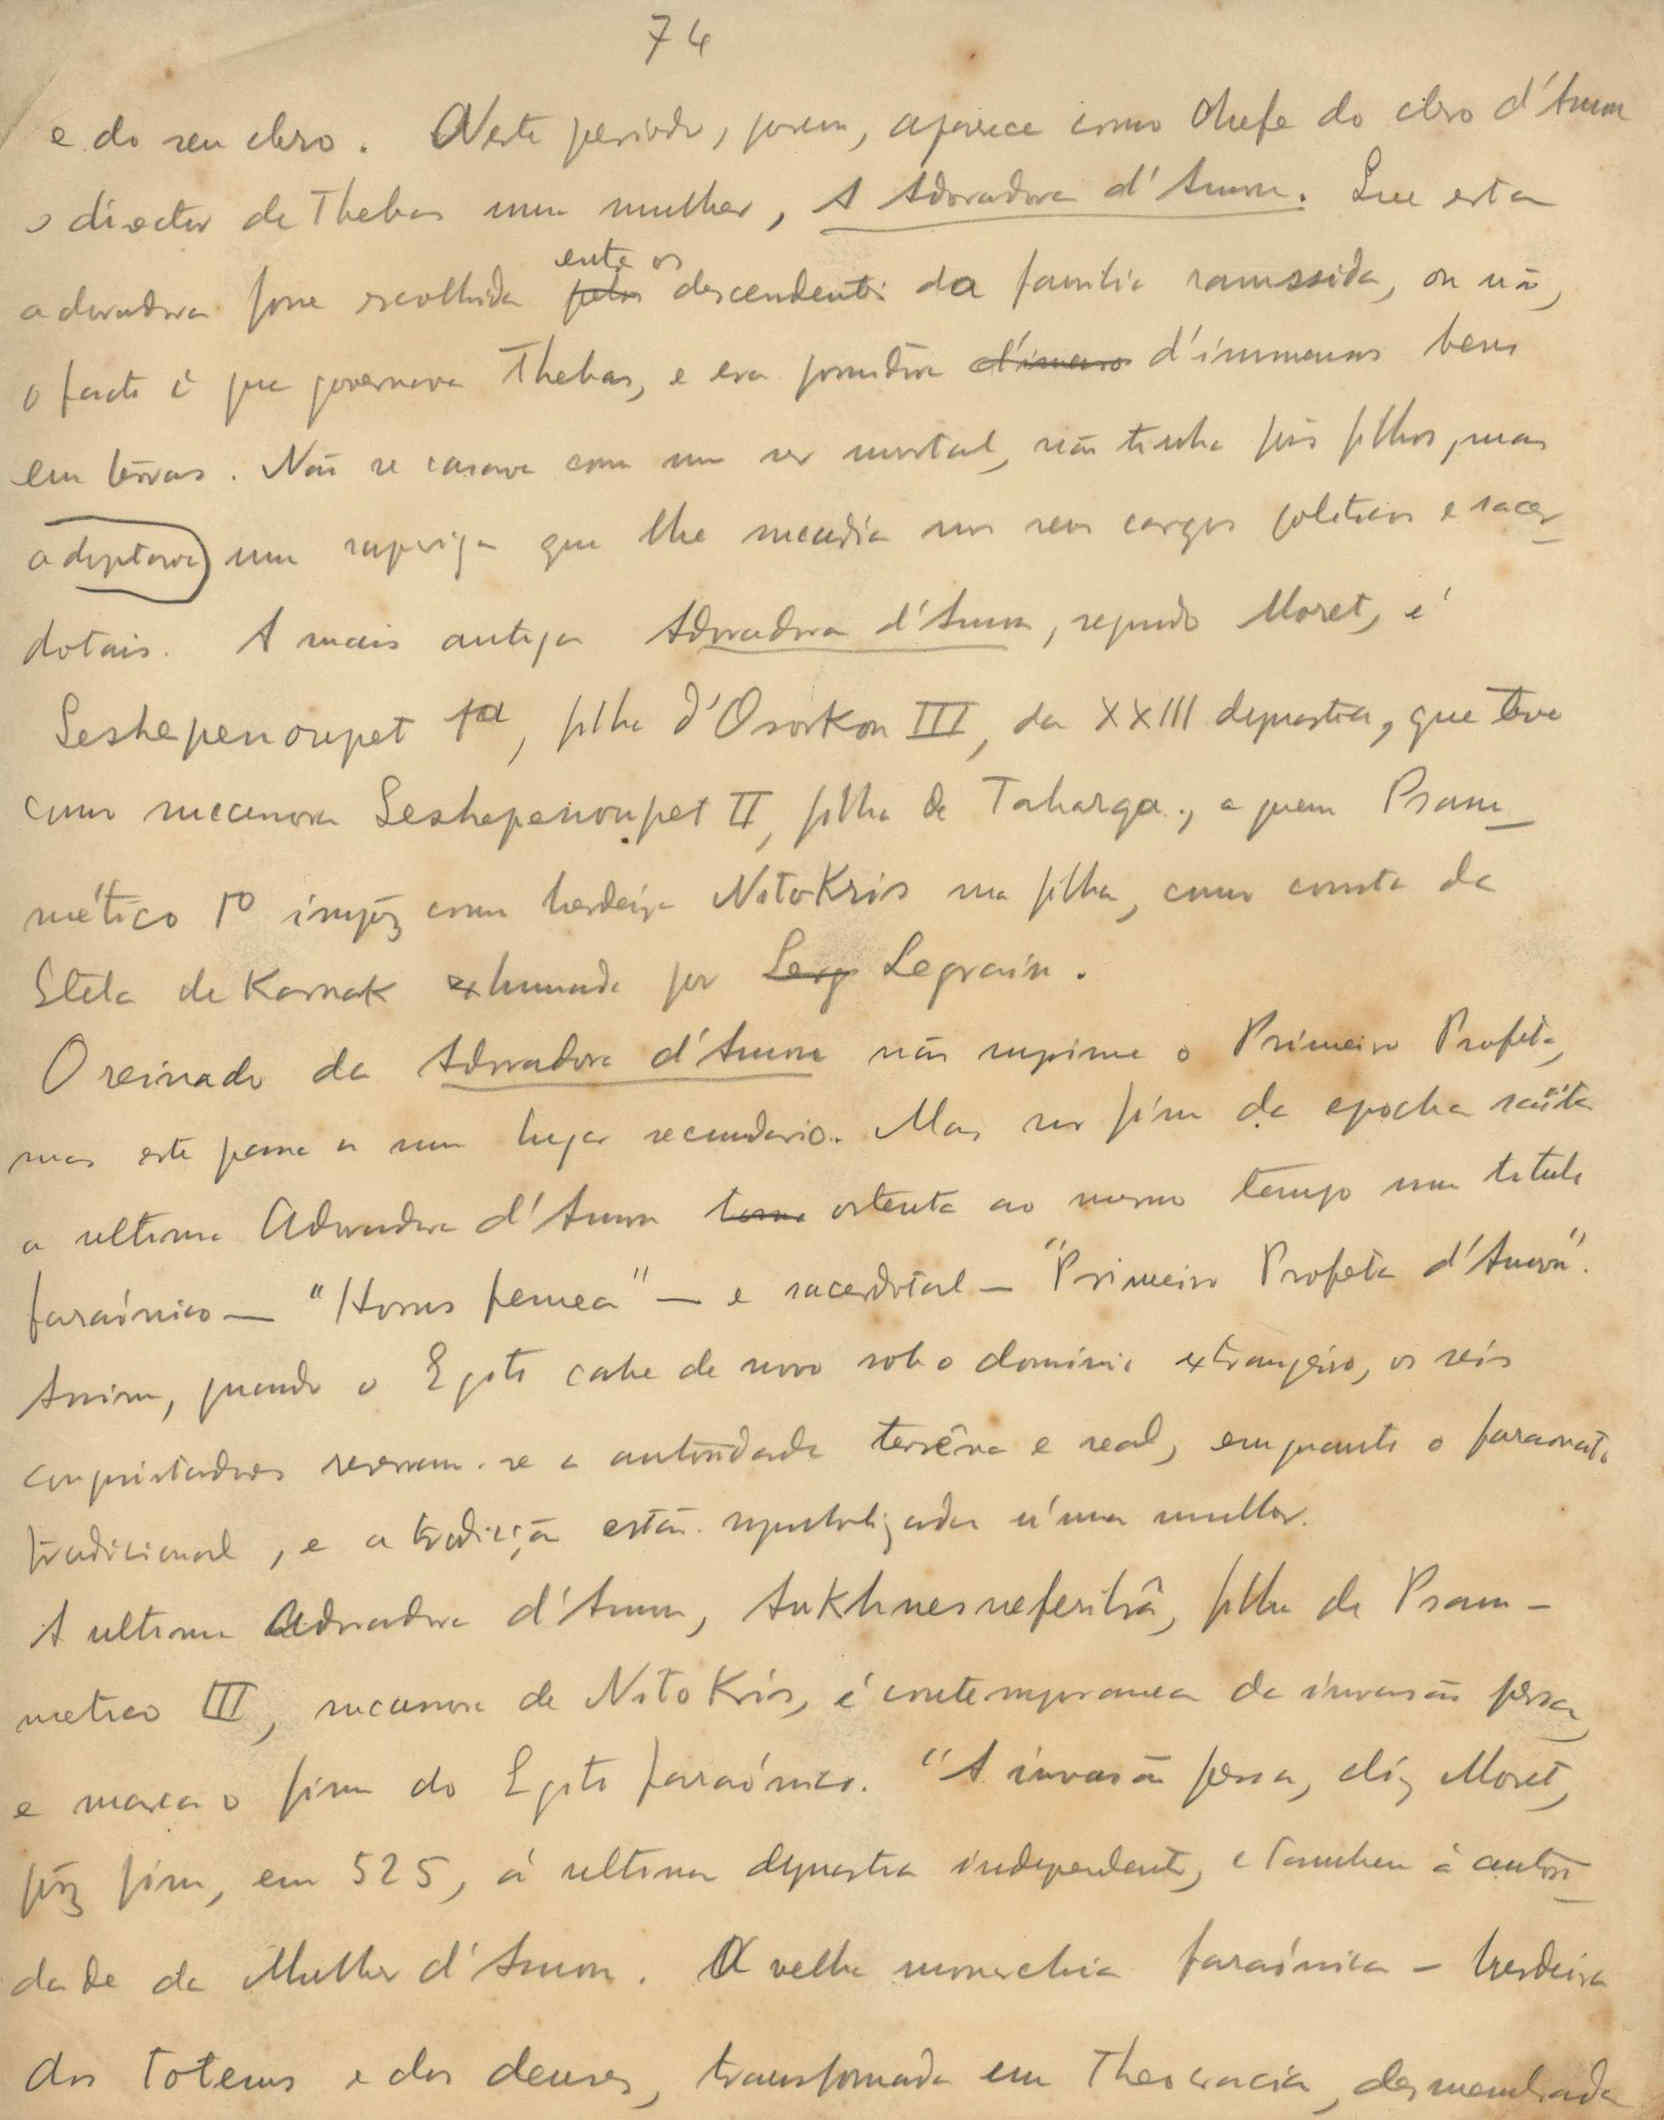 74
e do seu clero. Neste periodo, porem, aparece como Chefe do clero d'Amon
o director de Thebas uma mulher, A Adoradora d'Amon. Que esta
adoradora fosse escolhida entre os descendentes da familia ramssida, ou não,
o facto é que governava Thebas, e era possuidora d'immensos bens
em terras. Não se casava com um ser mortal, não tinha pois filhos, mas
adoptava uma rapariga que lhe succedia nos seus cargos politicos e sacer-
dotais. A mais antiga Adoradora d'Amon, segundo Moret, é
Seshepenoupet 1a, filha d'Osorkon III, da XXIII dynastia, que teve
como sucessora Seshepenoupet II, filha de Taharqa, a quem Psam-
mético 1º impôz como herdeira Nitokris sua filha, como consta da
Stela de Karnak exhumada por Leg Legrain.
O reinado da Adoradora d'Amon não suprime o Primeiro Profeta,
mas este passa a um lugar secundario. Mas no fim da epocha saïta
a ultima Adoradora d'Amon toma ostenta ao mesmo tempo um titulo
faraónico — "Horus femea" — e sacerdotal — "Primeiro Profeta d'Amon".
Assim, quando o Egito cahe de novo sob o dominio extrangeiro, os reis
conquistadores reservam-se a autoridade terrêna e real, emquanto o faraonato
tradicional, e a tradição estão symbolizados n'uma mulher.
A ultima Adoradora d'Amon, Ankhnesneferibrâ, filha de Psam-
metico III, sucessora de Nitokris, é contemporanea da invasão persa,
e marca o fim do Egito faraónico. "A invasão persa, diz Moret,
pôz fim, em 525, á ultima dynastia independente, e tambem á autori-
dade da Mulher d'Amon. A velha monarchia faraónica — herdeira
dos Totems e dos deuses, transformada em Theocracia, desmembrada